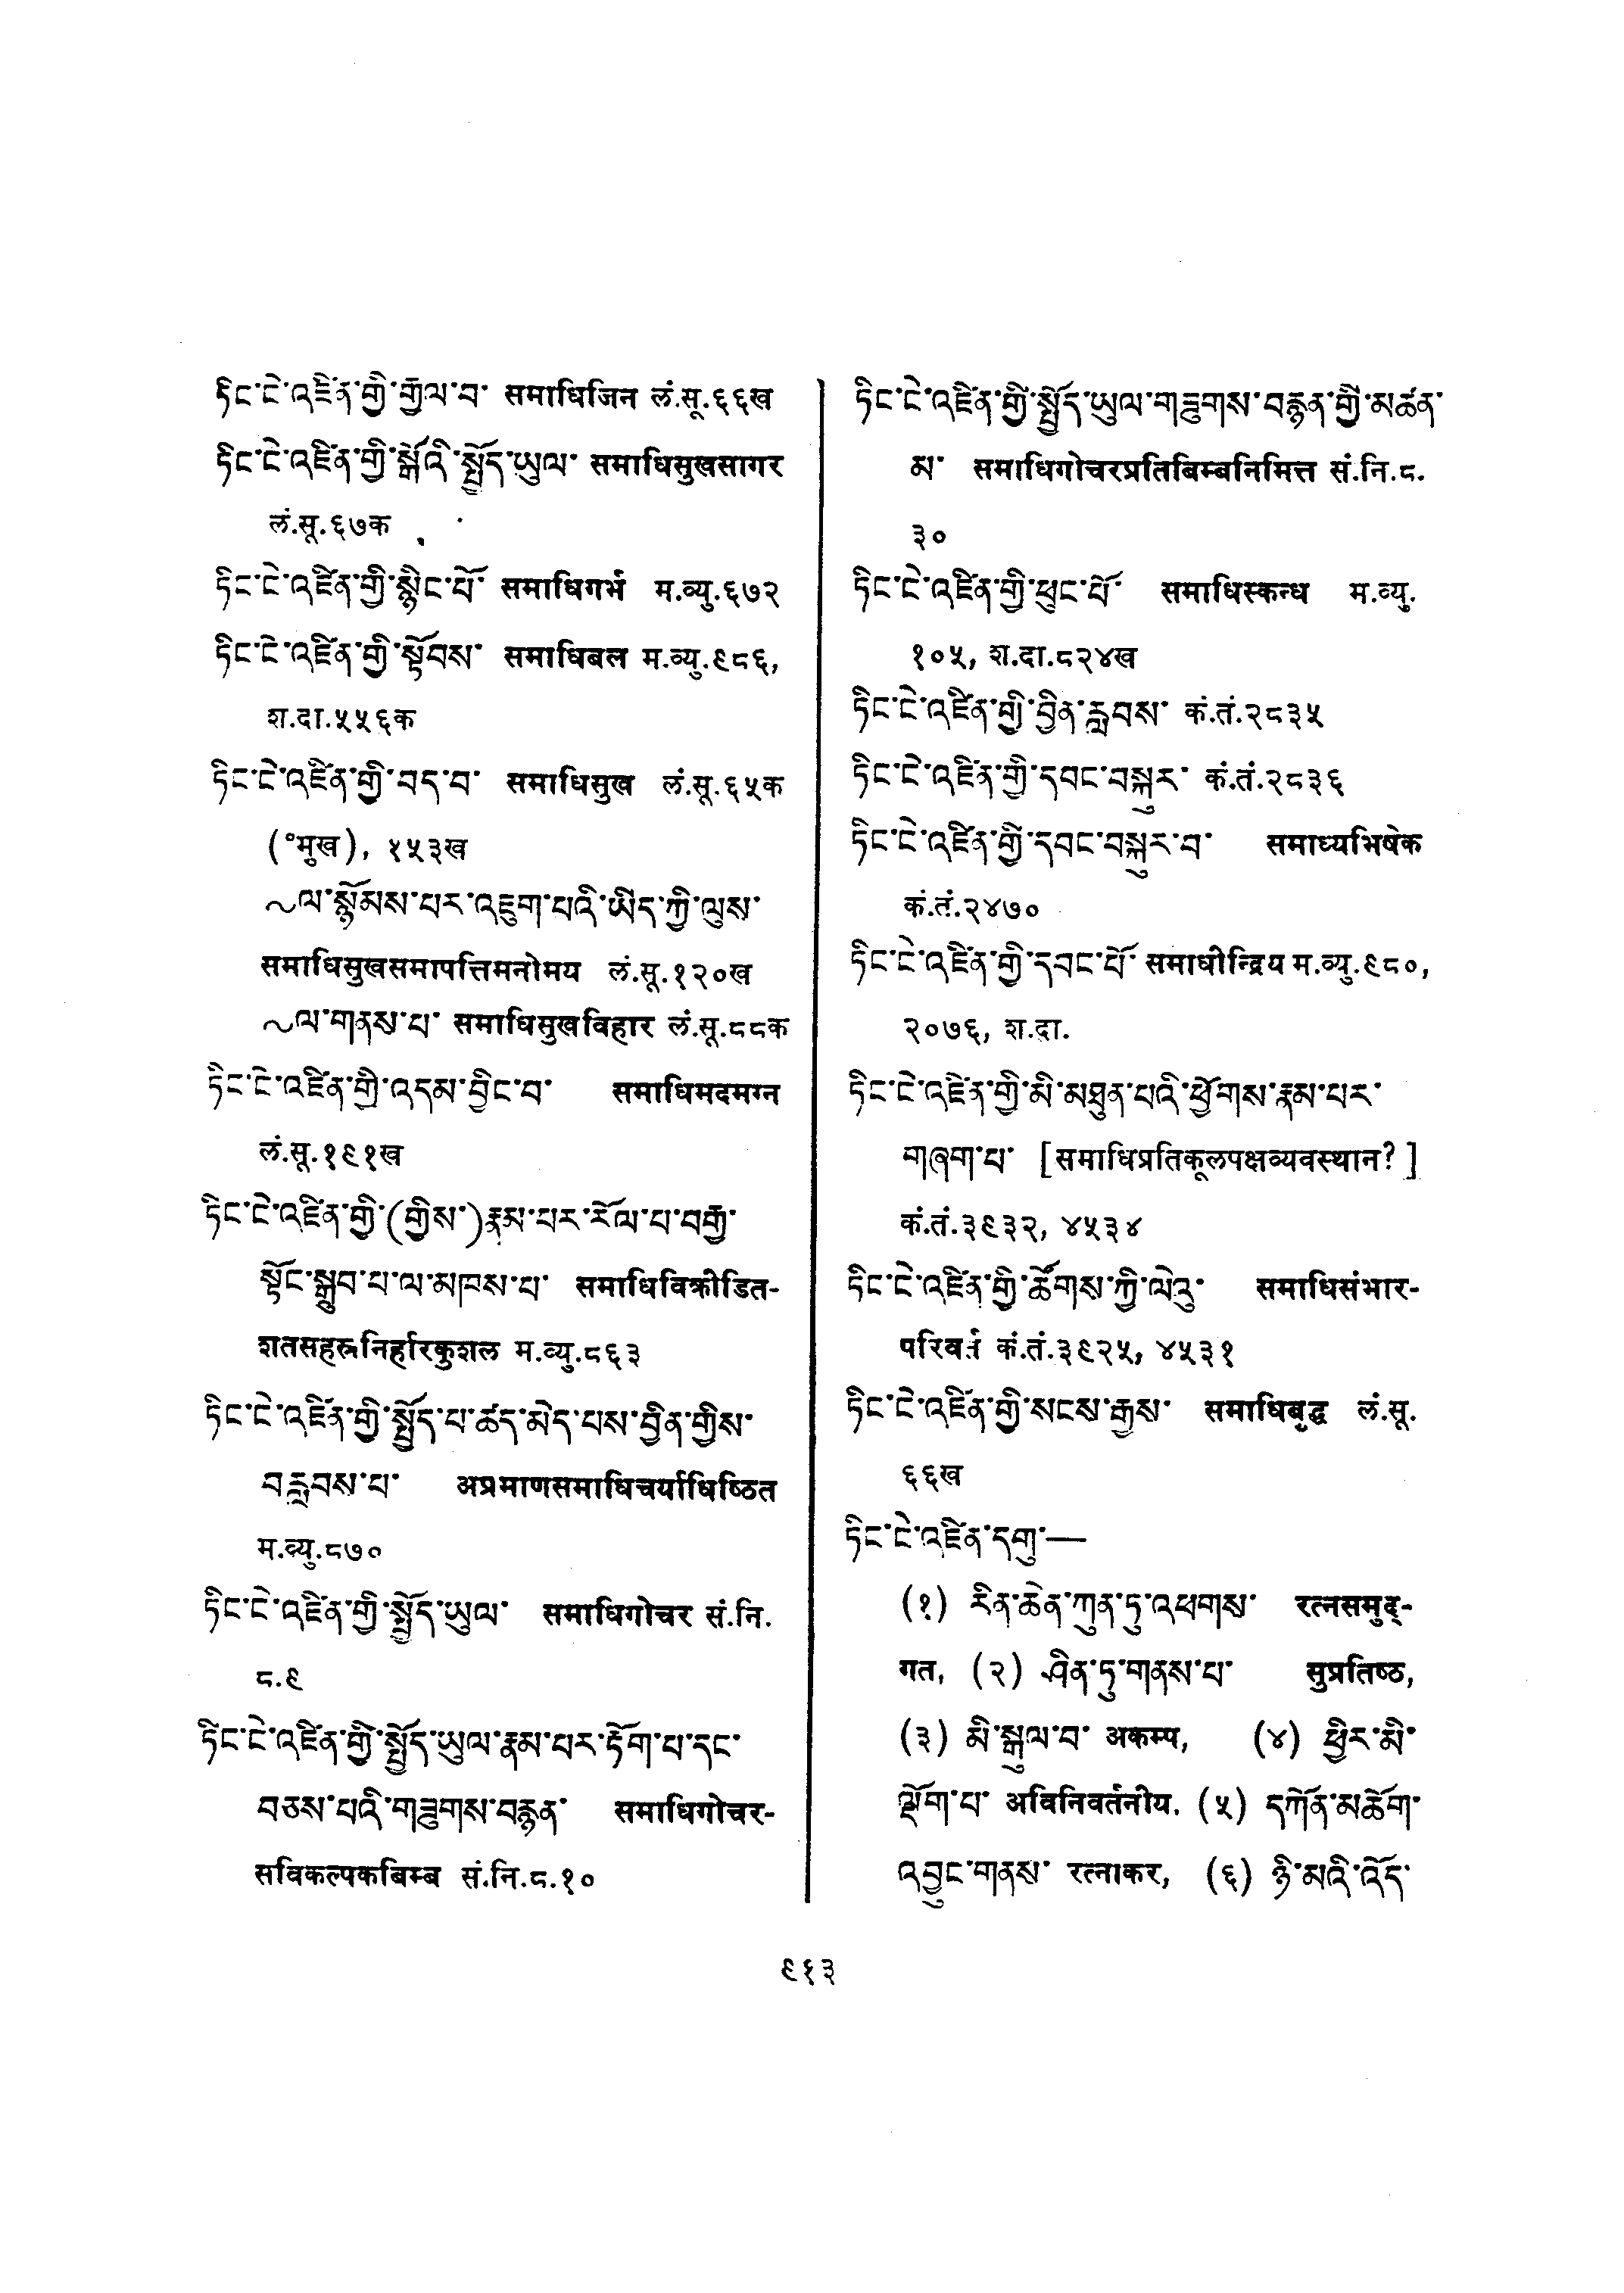 ཏིང་ངེ་འཛིན་གྱི་རྒྱལ་བ་ समाधिजिन लं.सू.६६ख
ཏིང་ངེ་འཛིན་གྱི་སྒོའི་སྤྱོད་ཡུལ་ समाधिसुखसागर
लं.सू.६७क
ཏིང་ངེ་འཛིན་གྱི་སྙིང་པོ་ समाधिगर्भ म.व्यु.६७२
ཏིང་ངེ་འཛིན་གྱི་སྟོབས་ समाधिबल म.व्यु.९८६,
श.दा.५५६क
ཏིང་ངེ་འཛིན་གྱི་བད་བ་ समाधिसुख लं.सू.६५क
(°मुख), १५३ख
~ལ་སྙོམས་པར་འཇུག་པའི་ཡིད་ཀྱི་ལུས་
समाधिसुखसमापत्तिमनोमय लं.सू.१२०ख
~ལ་གནས་པ་ समाधिसुखविहार लं.सू.८८क
ཏིང་ངེ་འཛིན་གྱི་འདམ་བྱིང་བ་ समाधिमदमग्न
लं.सू.१९१ख
ཏིང་ངེ་འཛིན་གྱི་(གྱིས་)རྣམ་པར་རོལ་པ་བརྒྱ་
སྟོང་སྒྲུབ་པ་ལ་མཁས་པ་ समाधिविक्रीडित-
शतसहस्रनिर्हारकुशल म.व्यु.८६३
ཏིང་ངེ་འཛིན་གྱི་སྤྱོད་པ་ཚད་མེད་པས་བྱིན་གྱིས་
བརླབས་པ་ अप्रमाणसमाधिचर्याधिष्ठित
म.व्यु.८७०
ཏིང་ངེ་འཛིན་གྱི་སྤྱོད་ཡུལ་ समाधिगोचर सं.नि.
८.९
ཏིང་ངེ་འཛིན་གྱི་སྤྱོད་ཡུལ་རྣམ་པར་རྟོག་པ་དང་
བཅས་པའི་གཟུགས་བརྙན་ समाधिगोचर-
सविकल्पकबिम्ब सं.नि.८.१०
ཏིང་ངེ་འཛིན་གྱི་སྤྱོད་ཡུལ་གཟུགས་བརྙན་གྱི་མཚན་
མ་ समाधिगोचरप्रतिबिम्बनिमित्त सं.नि.८.
३०
ཏིང་ངེ་འཛིན་གྱི་ཕུང་པོ་ समाधिस्कन्ध म.व्यु.
१०५, श.दा.८२४ख
ཏིང་ངེ་འཛིན་གྱི་བྱིན་རླབས་ कं.तं.२८३५
ཏིང་ངེ་འཛིན་གྱི་དབང་བསྐུར་ कं.तं.२८३६
ཏིང་ངེ་འཛིན་གྱི་དབང་བསྐུར་བ་ समाध्यभिषेक
कं.तं.२४७०
ཏིང་ངེ་འཛིན་གྱི་དབང་པོ་ समाधीन्द्रिय म.व्यु.९८०,
२०७६, श.दा.
ཏིང་ངེ་འཛིན་གྱི་མི་མཐུན་པའི་ཕྱོགས་རྣམ་པར་
གཞག་པ་ [समाधिप्रतिकूलपक्षव्यवस्थान?]
कं.तं.३९३२, ४५३४
ཏིང་ངེ་འཛིན་གྱི་ཚོགས་ཀྱི་ལེའུ་ समाधिसंभार-
परिवर्त कं.तं.३९२५, ४५३१
ཏིང་ངེ་འཛིན་གྱི་སངས་རྒྱས་ समाधिबुद्ध लं.सू.
६६ख
ཏིང་ངེ་འཛིན་དགུ་—
(१) རིན་ཆེན་ཀུན་ཏུ་འཕགས་ रत्नसमुद्-
गत, (२) ཤིན་ཏུ་གནས་པ་ सुप्रतिष्ठ,
(३) མི་སྒུལ་བ་ अकम्प, (४) ཕྱིར་མི་
ལྡོག་པ་ अविनिवर्तनीय, (५) དཀོན་མཆོག་
འབྱུང་གནས་ रत्नाकर, (६) ཉི་མའི་འོད་
९१३